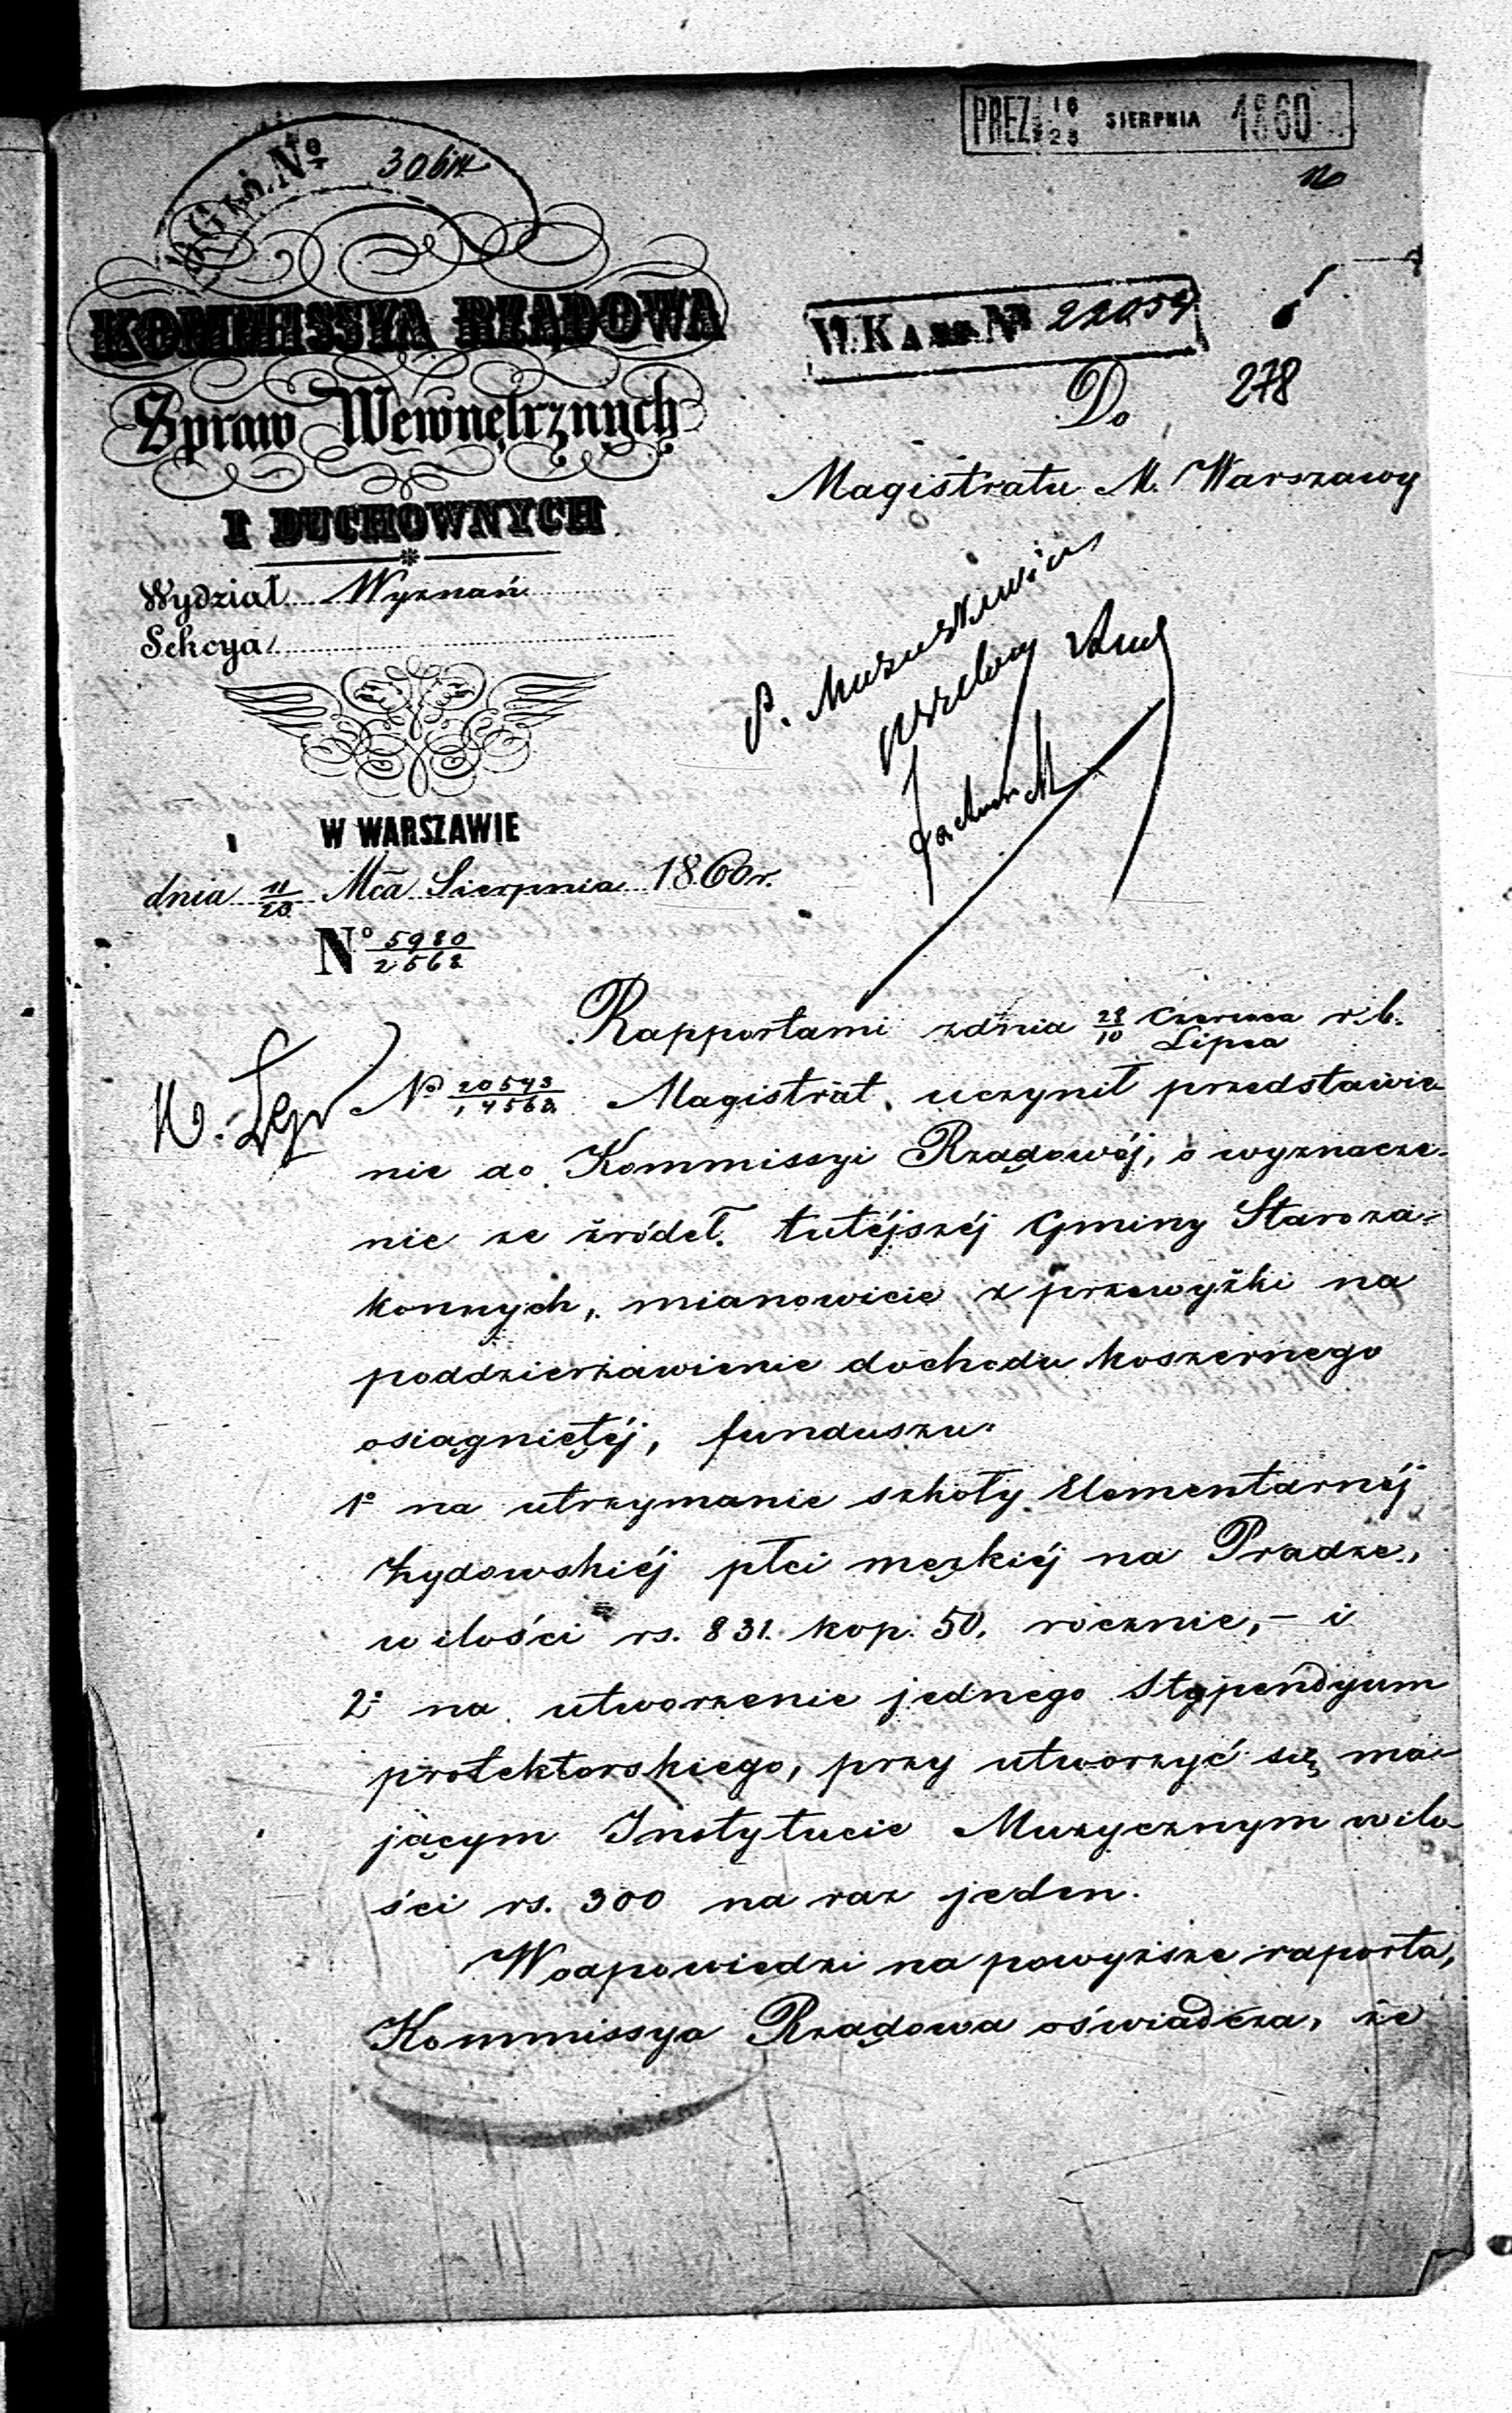 PREZ. 16/28 SIERPNIA 1860
No
KOMMISSYA RZĄDOWA
Spraw Wewnętrznych
I DUCHOWNYCH
Wydział Wyznań
Sekcya
W WARSZAWIE
dnia Mca Sierpnia 1860 r.
No 5980/2562
278
Do
Magistratu M. Warszawy
Rapportami z dnia 28/10 Czerwca/Lipca r. b.
No Magistrat, uczynił przedstawie-
nie do Kommissyi Rządowéj, o wyznacze-
nie ze źródeł tutéjszéj Gminy Staroza-
konnych, mianowicie z przewyżki na
poddzierżawienie dochodu koszernego
osiągniętéj, funduszu:
1o na utrzymanie szkoły Elementarnéj
Żydowskiéj płci męzkiéj na Pradze,
w ilości rs. 831. kop. 50. rocznie, – i
2o na utworzenie jednego Stypendyum
protektorskiego, przy utworzyć się ma-
jącym Instytucie Muzycznym w ilo-
ści rs. 300 na raz jeden.
W odpowiedzi na powyższe raporta,
Kommissya Rządowa oświadcza, że